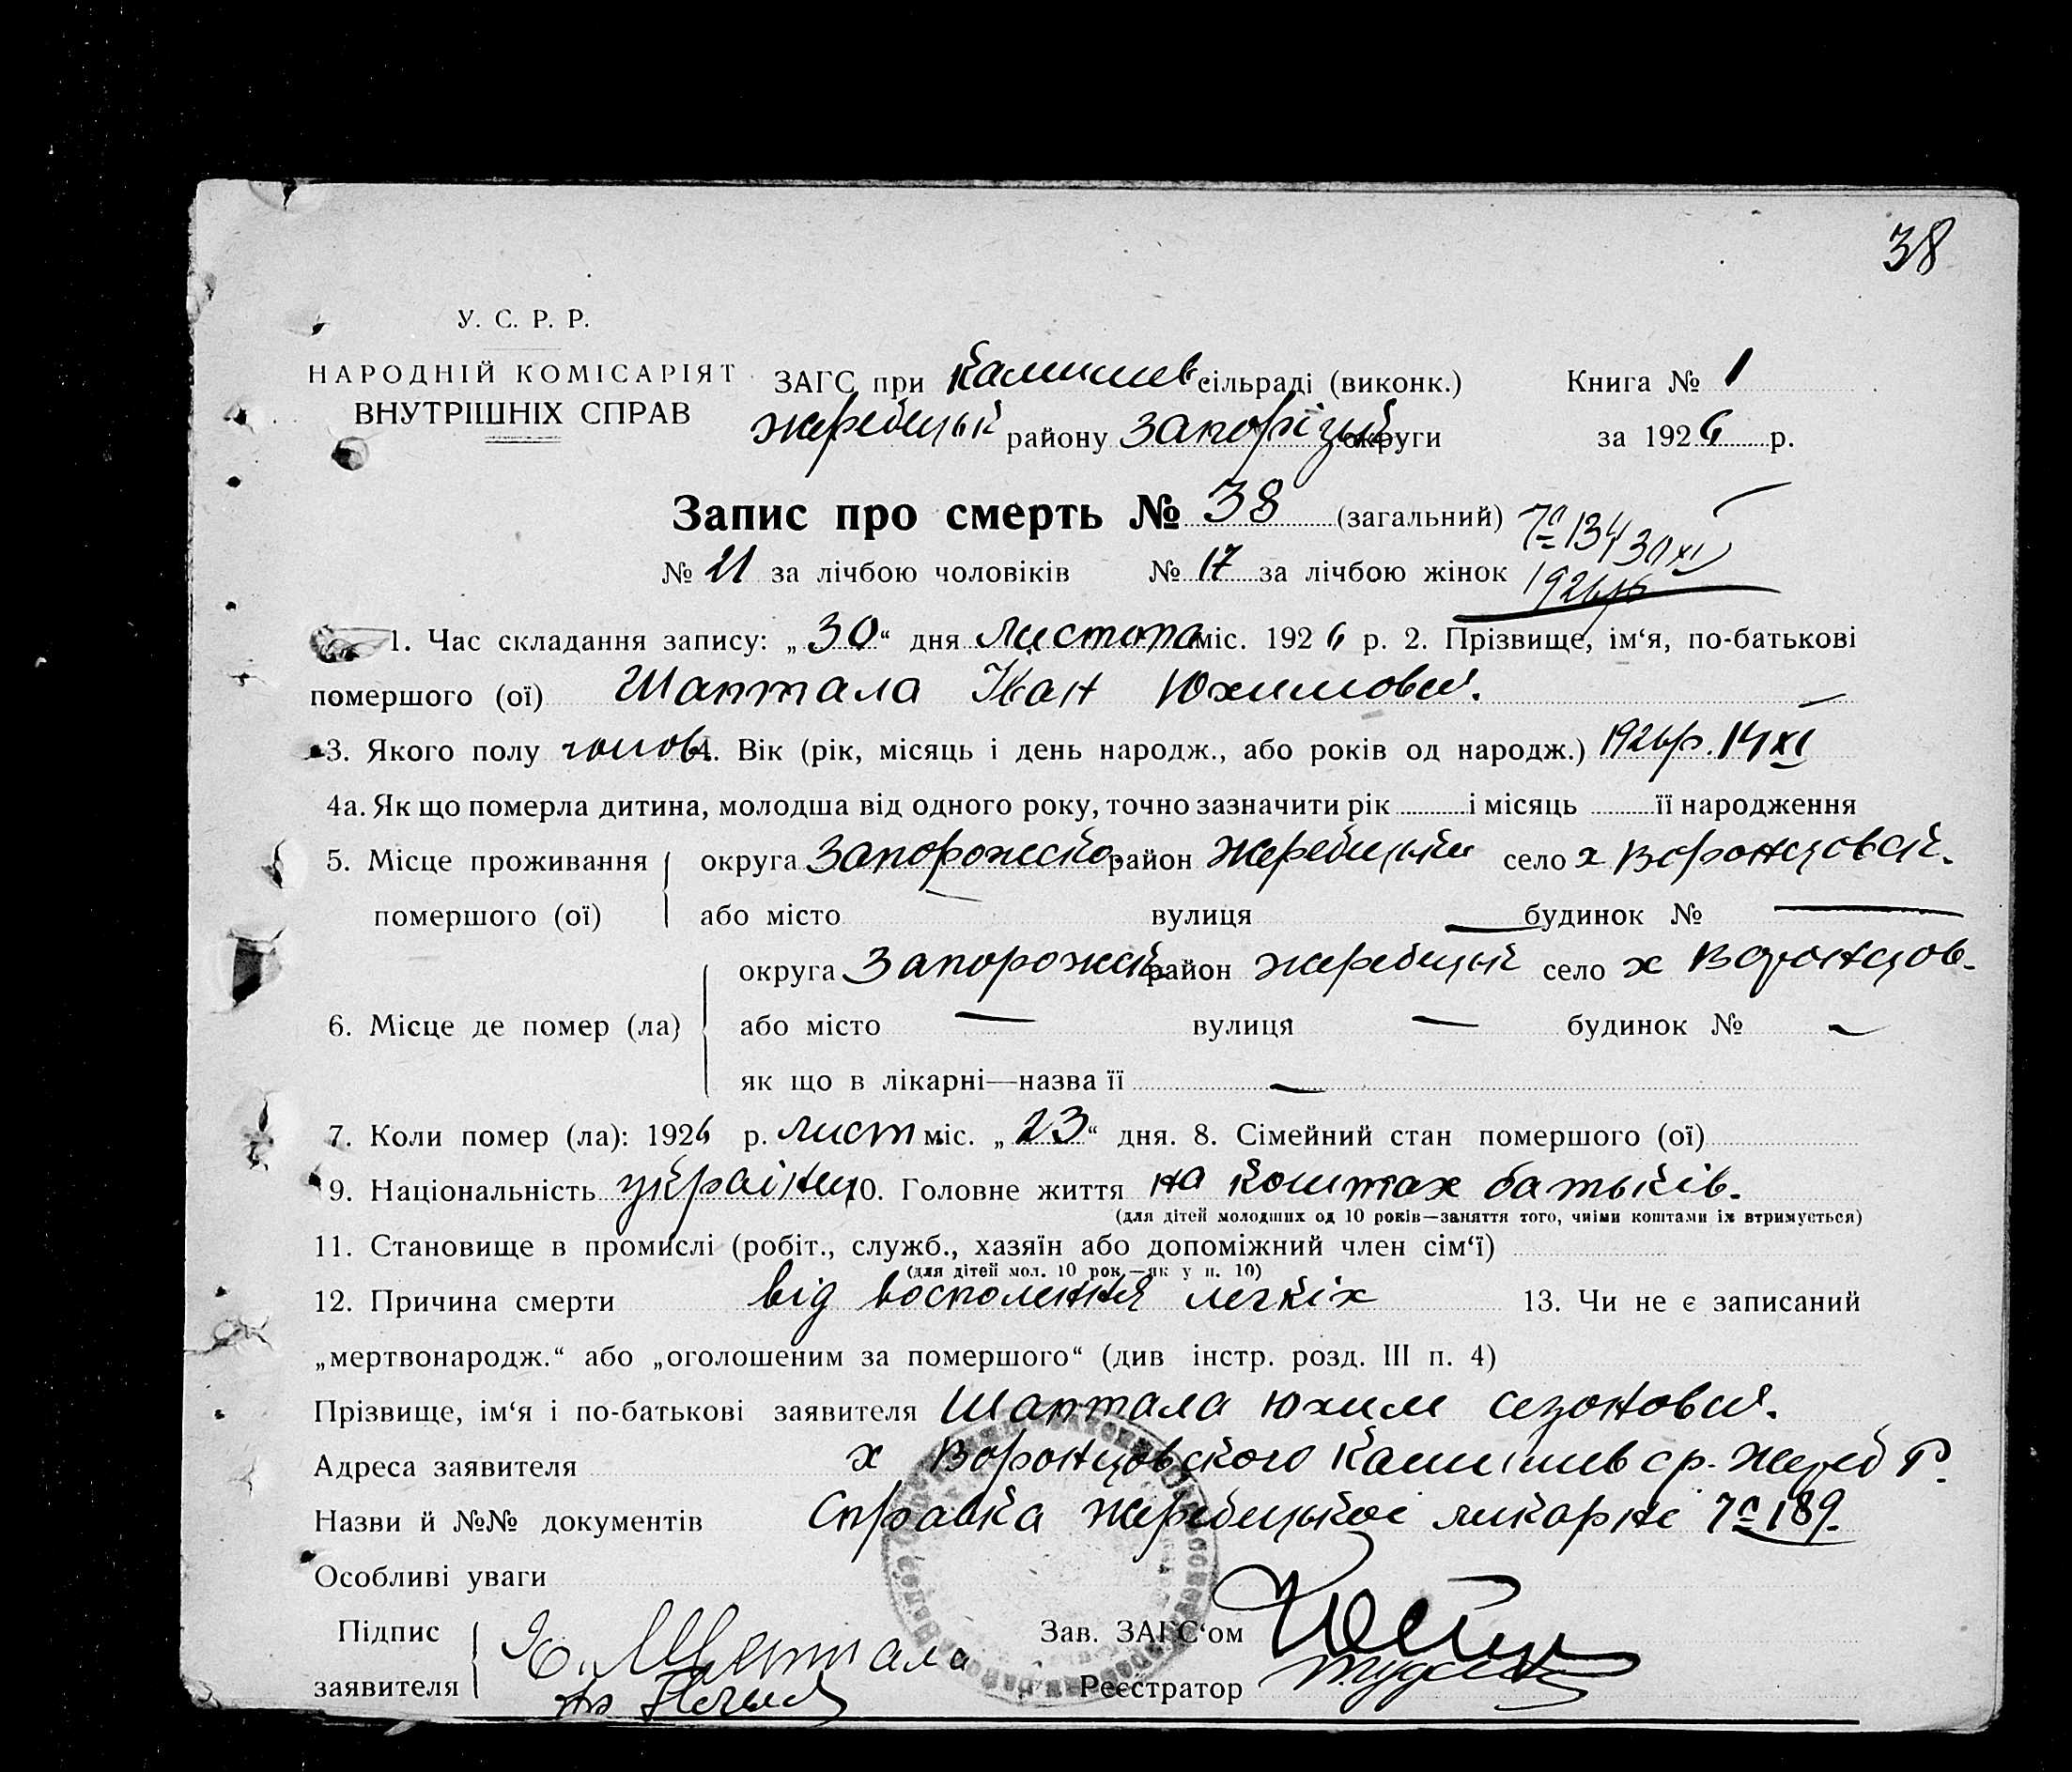 38
У. С. Р. Р.
НАРОДНІЙ КОМІСАРІЯТ
ВНУТРІШНІХ СПРАВ
ЗАГС при Камишев сільраді (виконк.) Книга № 1
жеребецький району Запорізької округи за 1926 р.
Запис про смерть № 38 (загальний)
№ 21 за лічбою чоловіків № 17 за лічбою жінок
№ 134 30 XI
1926 р
1. Час складання запису: „30“ дня Листопа міс. 1926 р. 2. Прізвище, ім‘я, по-батькові
помершого (ої) Шаптала Іван Юхимович.
3. Якого полу чолов. 4. Вік (рік, місяць і день народж., або років од народж.) 1926 р. 14 XI
4а. Як що померла дитина, молодша від одного року, точно зазначити рік і місяць її народження
5. Місце проживання помершого (ої) округа Запорожско район Жеребецький село х Воронцовск.
або місто вулиця — будинок № —
6. Місце де помер (ла) округа Запорожск район жеребецьк село х Воронцов.
або місто — вулиця — будинок № —
як що в лікарні—назва її —
7. Коли помер (ла): 1926 р. лист міс. „23“ дня. 8. Сімейний стан помершого (ої)
9. Національність українец 10. Головне життя на коштах батьків.
(для дітей молодших од 10 років—заняття того, чиїми коштами їх втримується)
11. Становище в промислі (робіт., служб., хазяїн або допоміжний член сім‘ї)
(для дітей мол. 10 рок.—як у п. 10)
12. Причина смерти від восполення легкіх 13. Чи не є записаний
„мертвонародж.“ або „оголошеним за помершого“ (див інстр. розд. III п. 4)
Прізвище, ім‘я і по-батькові заявителя Шаптала Юхим Сезонович.
Адреса заявителя х Воронцовского Камишев ср. Жереб Р.
Назви й №№ документів Справка жеребецькоі ликарні № 189.
Особливі уваги
Підпис заявителя Ю. Шаптала
Зав. ЗАГС‘ом
Реєстратор